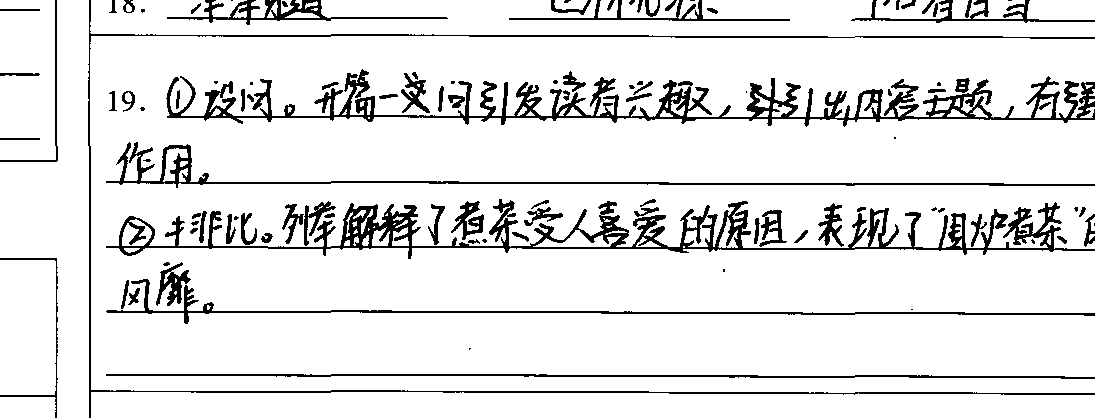 18. 津津乐道
19. ①设问。开篇一问引发读者兴趣,引出内容主题,有强
作用。
②排比。列举解释了煮茶受人喜爱的原因,表现了“围炉煮茶”的
风靡。